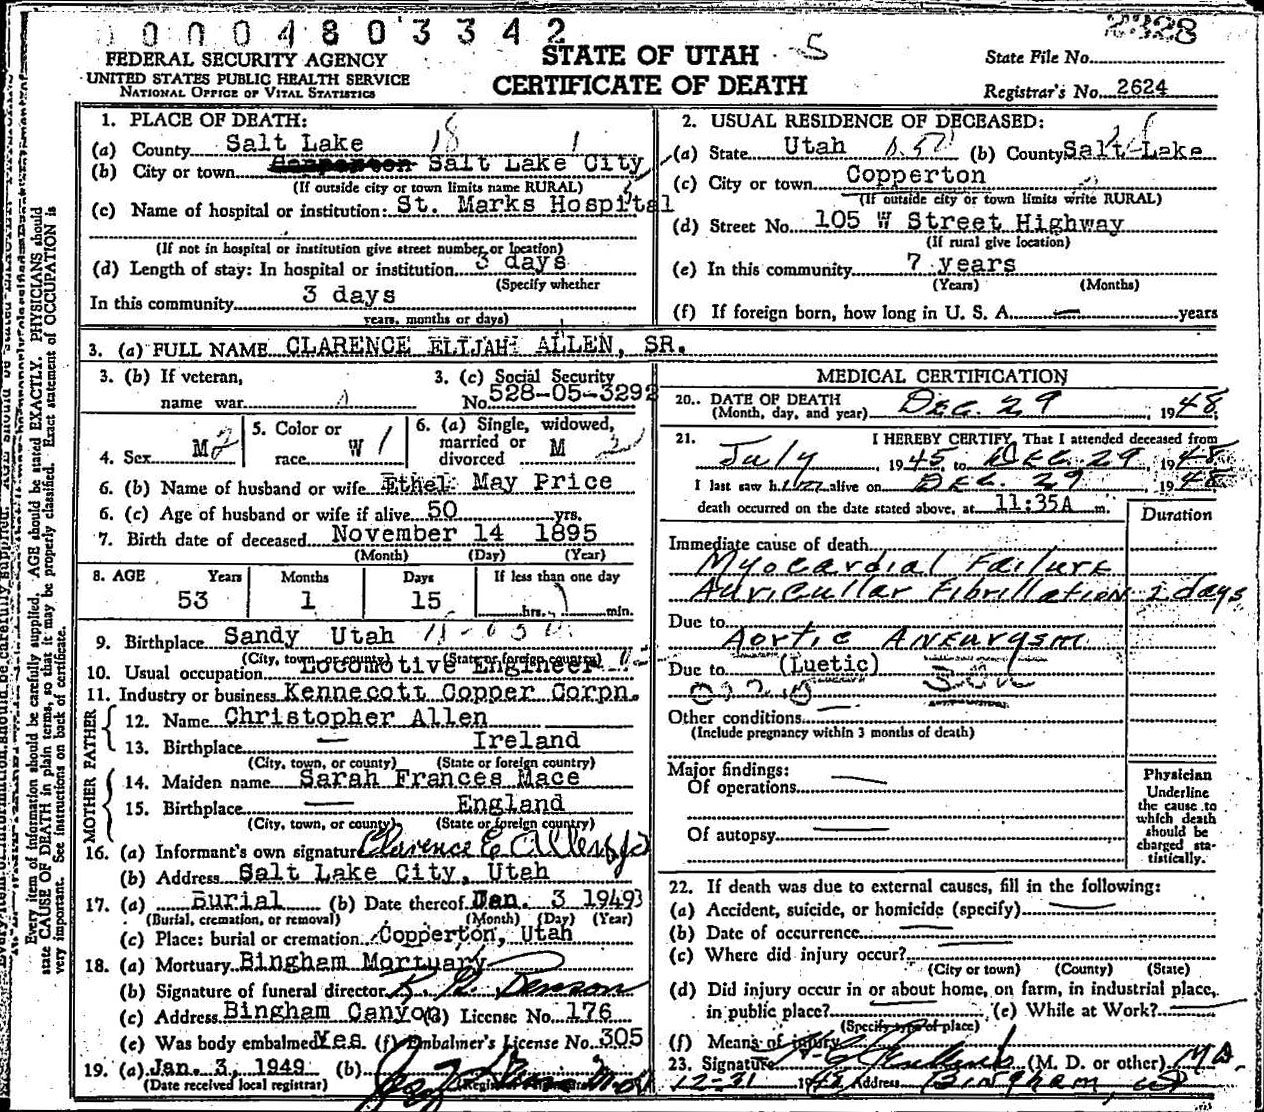 0004803342
FEDERAL SECURITY AGENCY
UNITED STATES PUBLIC HEALTH SERVICE
NATIONAL OFFICE OF VITAL STATISTICS
STATE OF UTAH 5
CERTIFICATE OF DEATH
State File No.
Registrar's No. 2624
1. PLACE OF DEATH:
(a) County Salt Lake 18 1
(b) City or town Salt Lake City
(If outside city or town limits name RURAL)
(c) Name of hospital or institution: St. Marks Hospital
(If not in hospital or institution give street number or location)
(d) Length of stay: In hospital or institution 3 days
(Specify whether
In this community 3 days
years, months or days)
2. USUAL RESIDENCE OF DECEASED:
(a) State Utah (b) County Salt Lake
(c) City or town Copperton
(If outside city or town limits write RURAL)
(d) Street No. 105 W Street Highway
(If rural give location)
(e) In this community 7 years
(Years) (Months)
(f) If foreign born, how long in U. S. A. — years
3. (a) FULL NAME CLARENCE ELIJAH ALLEN, SR.
3. (b) If veteran,
name war
3. (c) Social Security
No. 528-05-3292
4. Sex M 2
5. Color or
race W 1
6. (a) Single, widowed,
married or
divorced M 2
6. (b) Name of husband or wife Ethel May Price
6. (c) Age of husband or wife if alive 50 yrs.
7. Birth date of deceased November 14 1895
(Month) (Day) (Year)
8. AGE Years Months Days If less than one day
53 1 15 hrs. min.
9. Birthplace Sandy Utah
(City, town, or county) (State or foreign country)
10. Usual occupation Locomotive Engineer
11. Industry or business Kennecott Copper Corpn.
FATHER
12. Name Christopher Allen
13. Birthplace — Ireland
(City, town, or county) (State or foreign country)
MOTHER
14. Maiden name Sarah Frances Mace
15. Birthplace — England
(City, town, or county) (State or foreign country)
16. (a) Informant's own signature Clarence E Allen Jr
(b) Address Salt Lake City, Utah
17. (a) Burial (b) Date thereof Jan. 3 1949
(Burial, cremation, or removal) (Month) (Day) (Year)
(c) Place: burial or cremation Copperton, Utah
18. (a) Mortuary Bingham Mortuary
(b) Signature of funeral director
(c) Address Bingham Canyon (d) License No. 176
(e) Was body embalmed Yes (f) Embalmer's License No. 305
19. (a) Jan. 3, 1949 (b)
(Date received local registrar)
MEDICAL CERTIFICATION
20. DATE OF DEATH
(Month, day, and year) Dec. 29, 1948
21. I HEREBY CERTIFY, That I attended deceased from
July, 1945, to Dec. 29 1948
I last saw him alive on Dec. 29 1948
death occurred on the date stated above, at 11:35A m.
Duration
Immediate cause of death
Myocardial Failure
Auricullar Fibrillation 2 days
Due to Aortic Aneurysm
Due to (Luetic)
Other conditions
(Include pregnancy within 3 months of death)
Major findings:
Of operations —
Of autopsy —
Physician
Underline
the cause to
which death
should be
charged sta-
tistically.
22. If death was due to external causes, fill in the following:
(a) Accident, suicide, or homicide (specify) —
(b) Date of occurrence —
(c) Where did injury occur? —
(City or town) (County) (State)
(d) Did injury occur in or about home, on farm, in industrial place,
in public place? — (e) While at Work? —
(Specify type of place)
(f) Means of injury
23. Signature (M. D. or other) MD.
12-31 1948 Address Bingham, Ut
Every item of information should be carefully supplied. AGE should be stated EXACTLY. PHYSICIANS should
state CAUSE OF DEATH in plain terms, so that it may be properly classified. Exact statement of OCCUPATION is
very important. See instructions on back of certificate.